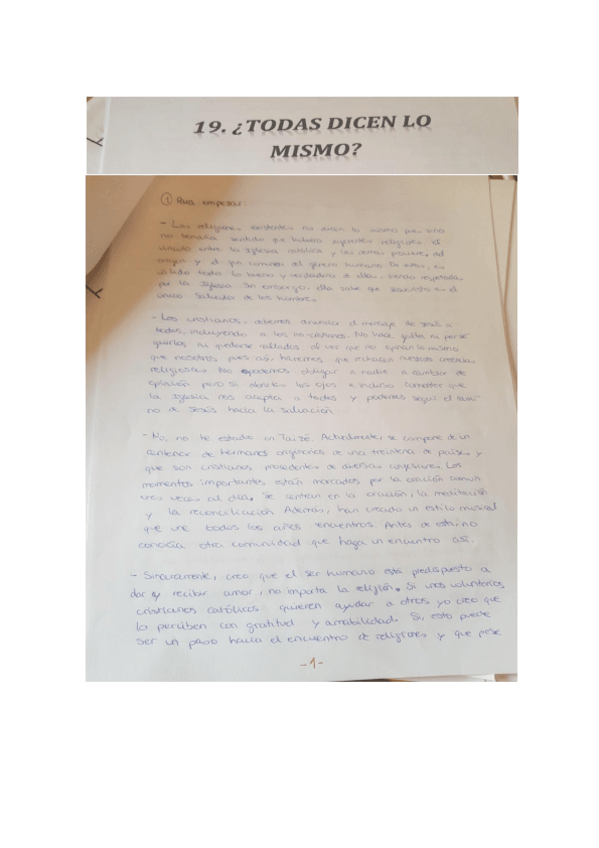 19. ¿TODAS DICEN LO
MISMO?
① Para empezar:
- Las religiones existentes no dicen lo mismo pues sino
no tendría sentido que hubiera diferentes religiones. El
vínculo entre la Iglesia católica y las demás proviene del
origen y el fin comunes del género humano. De estas, es
válido todo lo bueno y verdadero de ellas, siendo respetada
por la Iglesia. Sin embargo, ella sabe que Jesucristo es el
único Salvador de los hombres.
- Los cristianos, debemos anunciar el mensaje de Jesús a
todos, incluyendo a los no-cristianos. No hace falta ni perse
guirlos ni quedarse callados al ver que no opinan lo mismo
que nosotros pues así, haremos que rechacen nuestras creencias
religiosas. No podemos obligar a nadie a cambiar de
opinión pero sí abrirles los ojos e incluso comentar que
la Iglesia nos acepta a todos y podemos seguir el cami-
no de Jesús hacia la salvación.
- No, no he estado en Taizé. Actualmente, se compone de un
centenar de hermanos originarios de una treintena de países y
que son cristianos procedentes de diversas
Los
momentos importantes están marcados por la oración común
tres veces al día. Se centran en la oración, la meditación
y la reconciliación. Además, han creado un estilo musical
que une todos los años encuentros. Antes de esta, no
conocía otra comunidad que haga un encuentro así.
- Sinceramente, creo que el ser humano está predispuesto a
dar y recibir amor, no importa la religión. Si unos voluntarios
cristianos católicos quieren ayudar a otros yo creo que
lo perciben con gratitud y amabilidad. Sí, esto puede
ser un paso hacia el encuentro de religiones y que pese
-1-